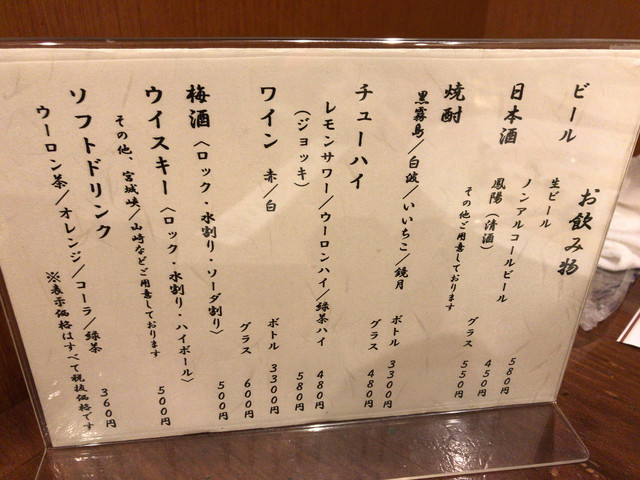 お飲み物
ビール
生ビール 580円
ノンアルコールビール 450円
日本酒
鳳陽(清酒) グラス 550円
その他ご用意しております
焼酎
黒霧島/白波/いいちこ/鏡月
ボトル 3300円
グラス 480円
チューハイ
レモンサワー/ウーロンハイ/緑茶ハイ 480円
(ジョッキ) 580円
ワイン 赤/白
ボトル 3300円
グラス 600円
梅酒〈ロック・水割り・ソーダ割り〉 500円
ウイスキー〈ロック・水割り・ハイボール〉 500円
その他、宮城峡/山崎などご用意しております
ソフトドリンク
ウーロン茶/オレンジ/コーラ/緑茶 360円
※表示価格はすべて税抜価格です